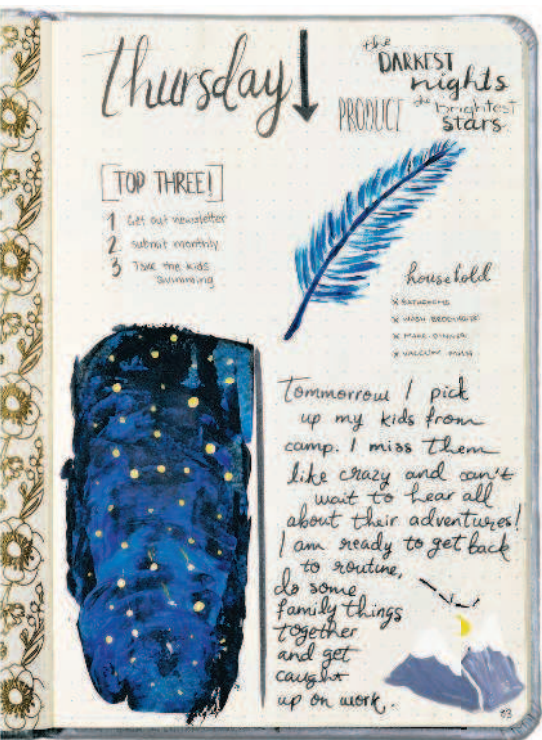 Thursday
the
DARKEST
nights
PRODUCE the brightest
stars.
[TOP THREE!]
1 Get out newsletter
2 submit monthly
3 Take the kids
swimming
household
x BATHROOMS
x MAKE DINNER
x VACUUM MAIN
Tommorrow I pick
up my kids from
camp. I miss them
like crazy and can't
wait to hear all
about their adventures!
I am ready to get back
to routine,
do some
family things
together
and get
caught
up on work.